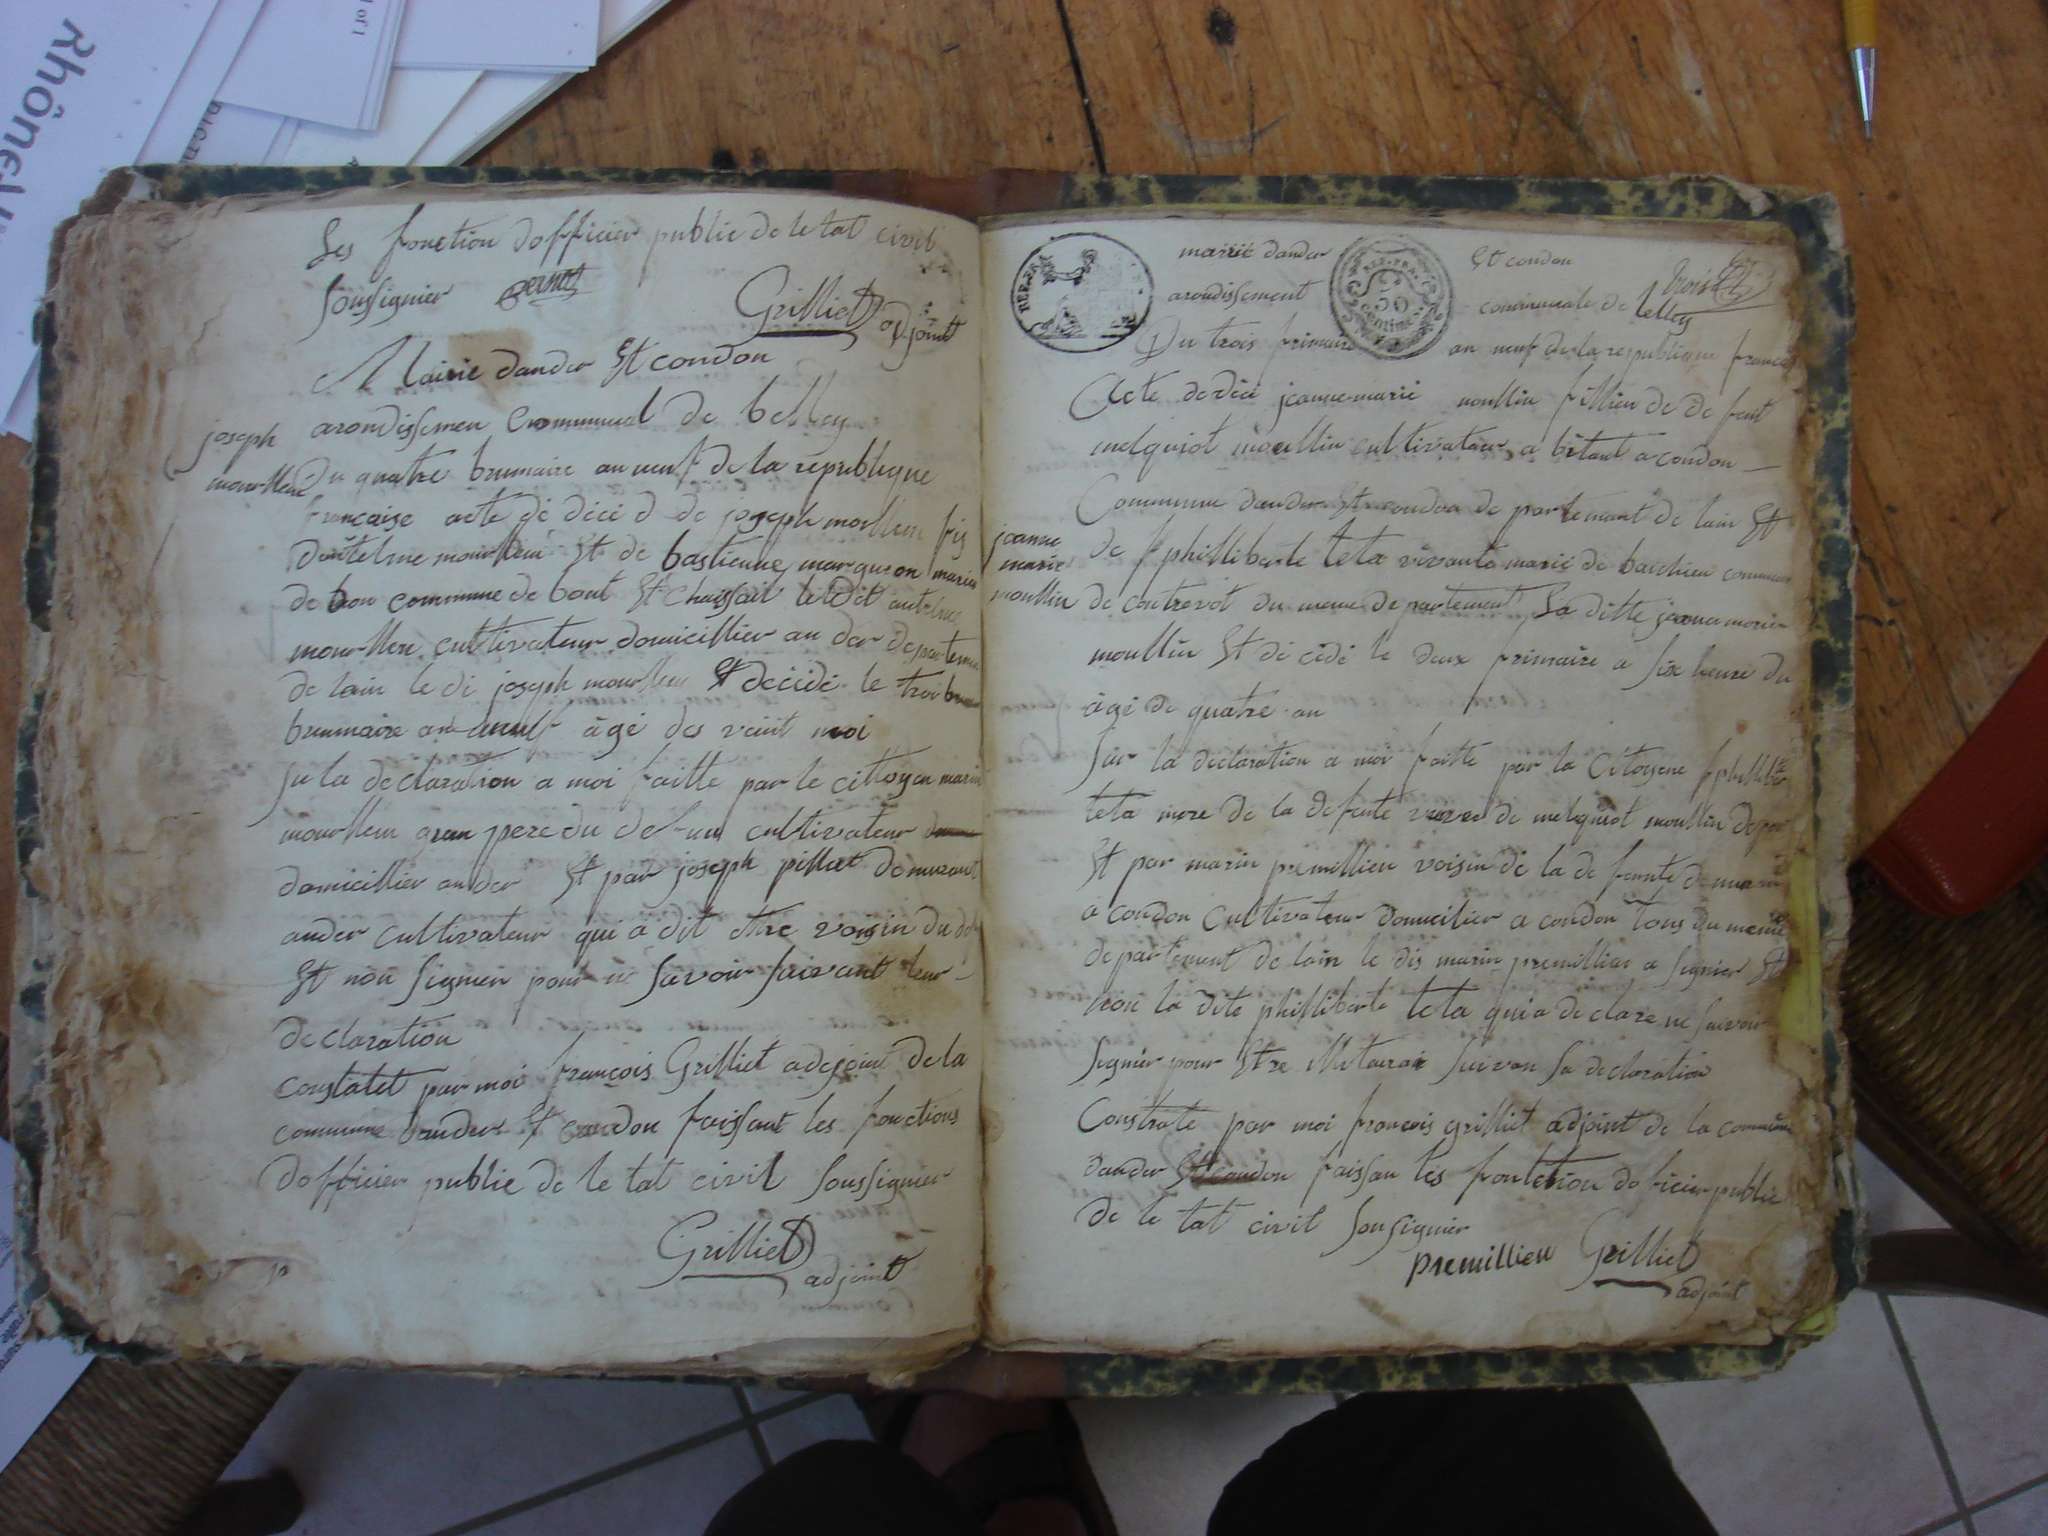 Rhône
1 of 1
Les fonction dofficier public de le tat civil
soussignier
Grilliet adjoint
Mairie dander Et condon
arondissemen Communal de belley
joseph
mourllieu
du quatre brumaire an neuf de la republique
francaise acte de décé d de joseph
dantelme Et de bastienne marguron
de bon commune de bont Et Chaissait le dit antelme
cultivateur domicillier an der departeme
de lain le di joseph Et décidé le troi
brumaire an neuf âgé des veint moi
su la déclaration a moi faitte par le cittoyen marin
gran pere du defun cultivateur
domicillier ander Et par joseph pilliet demurant
ander cultivateur qui a dit etre voisin du
Et non signier pour n savoir saivant leur
declaration
constatet par moi françois Grilliet adejoint de la
commune dander Et condon faissant les fonctions
dofficier public de le tat civil soussignier
Grilliet
adjoint
REP. FRA
mairie dander
REP. FRA.
50
Centime
Et condon
arondissement
communale de belley
trois
Du trois frimaire an neuf de la respublique france
Acte de décé jeanne marie moullin fillieu de de funt
melquiot moullin cultivateur a bitant a condon
Commune dander Et condon de partemant de lain Et
jeanne
marie
moullin
de phillíberte teta vivante marié de commune
de contrevot du meme departement La ditte jeanne marie
moullin Et décédé le deux frimaire a six heure du
âgé de quatre an
sur la declaration a moi faitte par la Citoyene
teta mere de la defunte veuve de melquiot moullin
Et par marin premillieu voisin de la de funte
a condon Cultivateur domicilier a condon tous du meme
departement de lain le dis marin premillieu a signier Et
non la dite phílliberte teta qui a declare ne savoir
signier pour Etre suivan sa declaration
Constate par moi françois grilliet adjoint de la commune
dander Et condon faissan les dofficier public
de le tat civil sousignier
premillieu Grilliet
adjoint